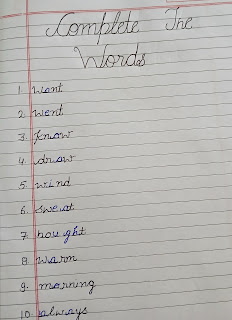 Complete The
Words
1. want
2. went
3. know
4. draw
5. wind
6. sweat
7. bought
8. warm
9. morning
10. always